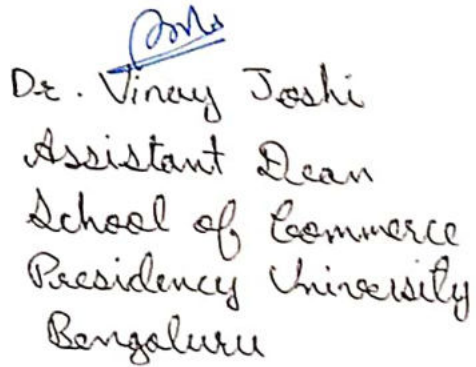 Dr. Vinay Joshi
Assistant Dean
School of Commerce
Presidency University
Bengaluru